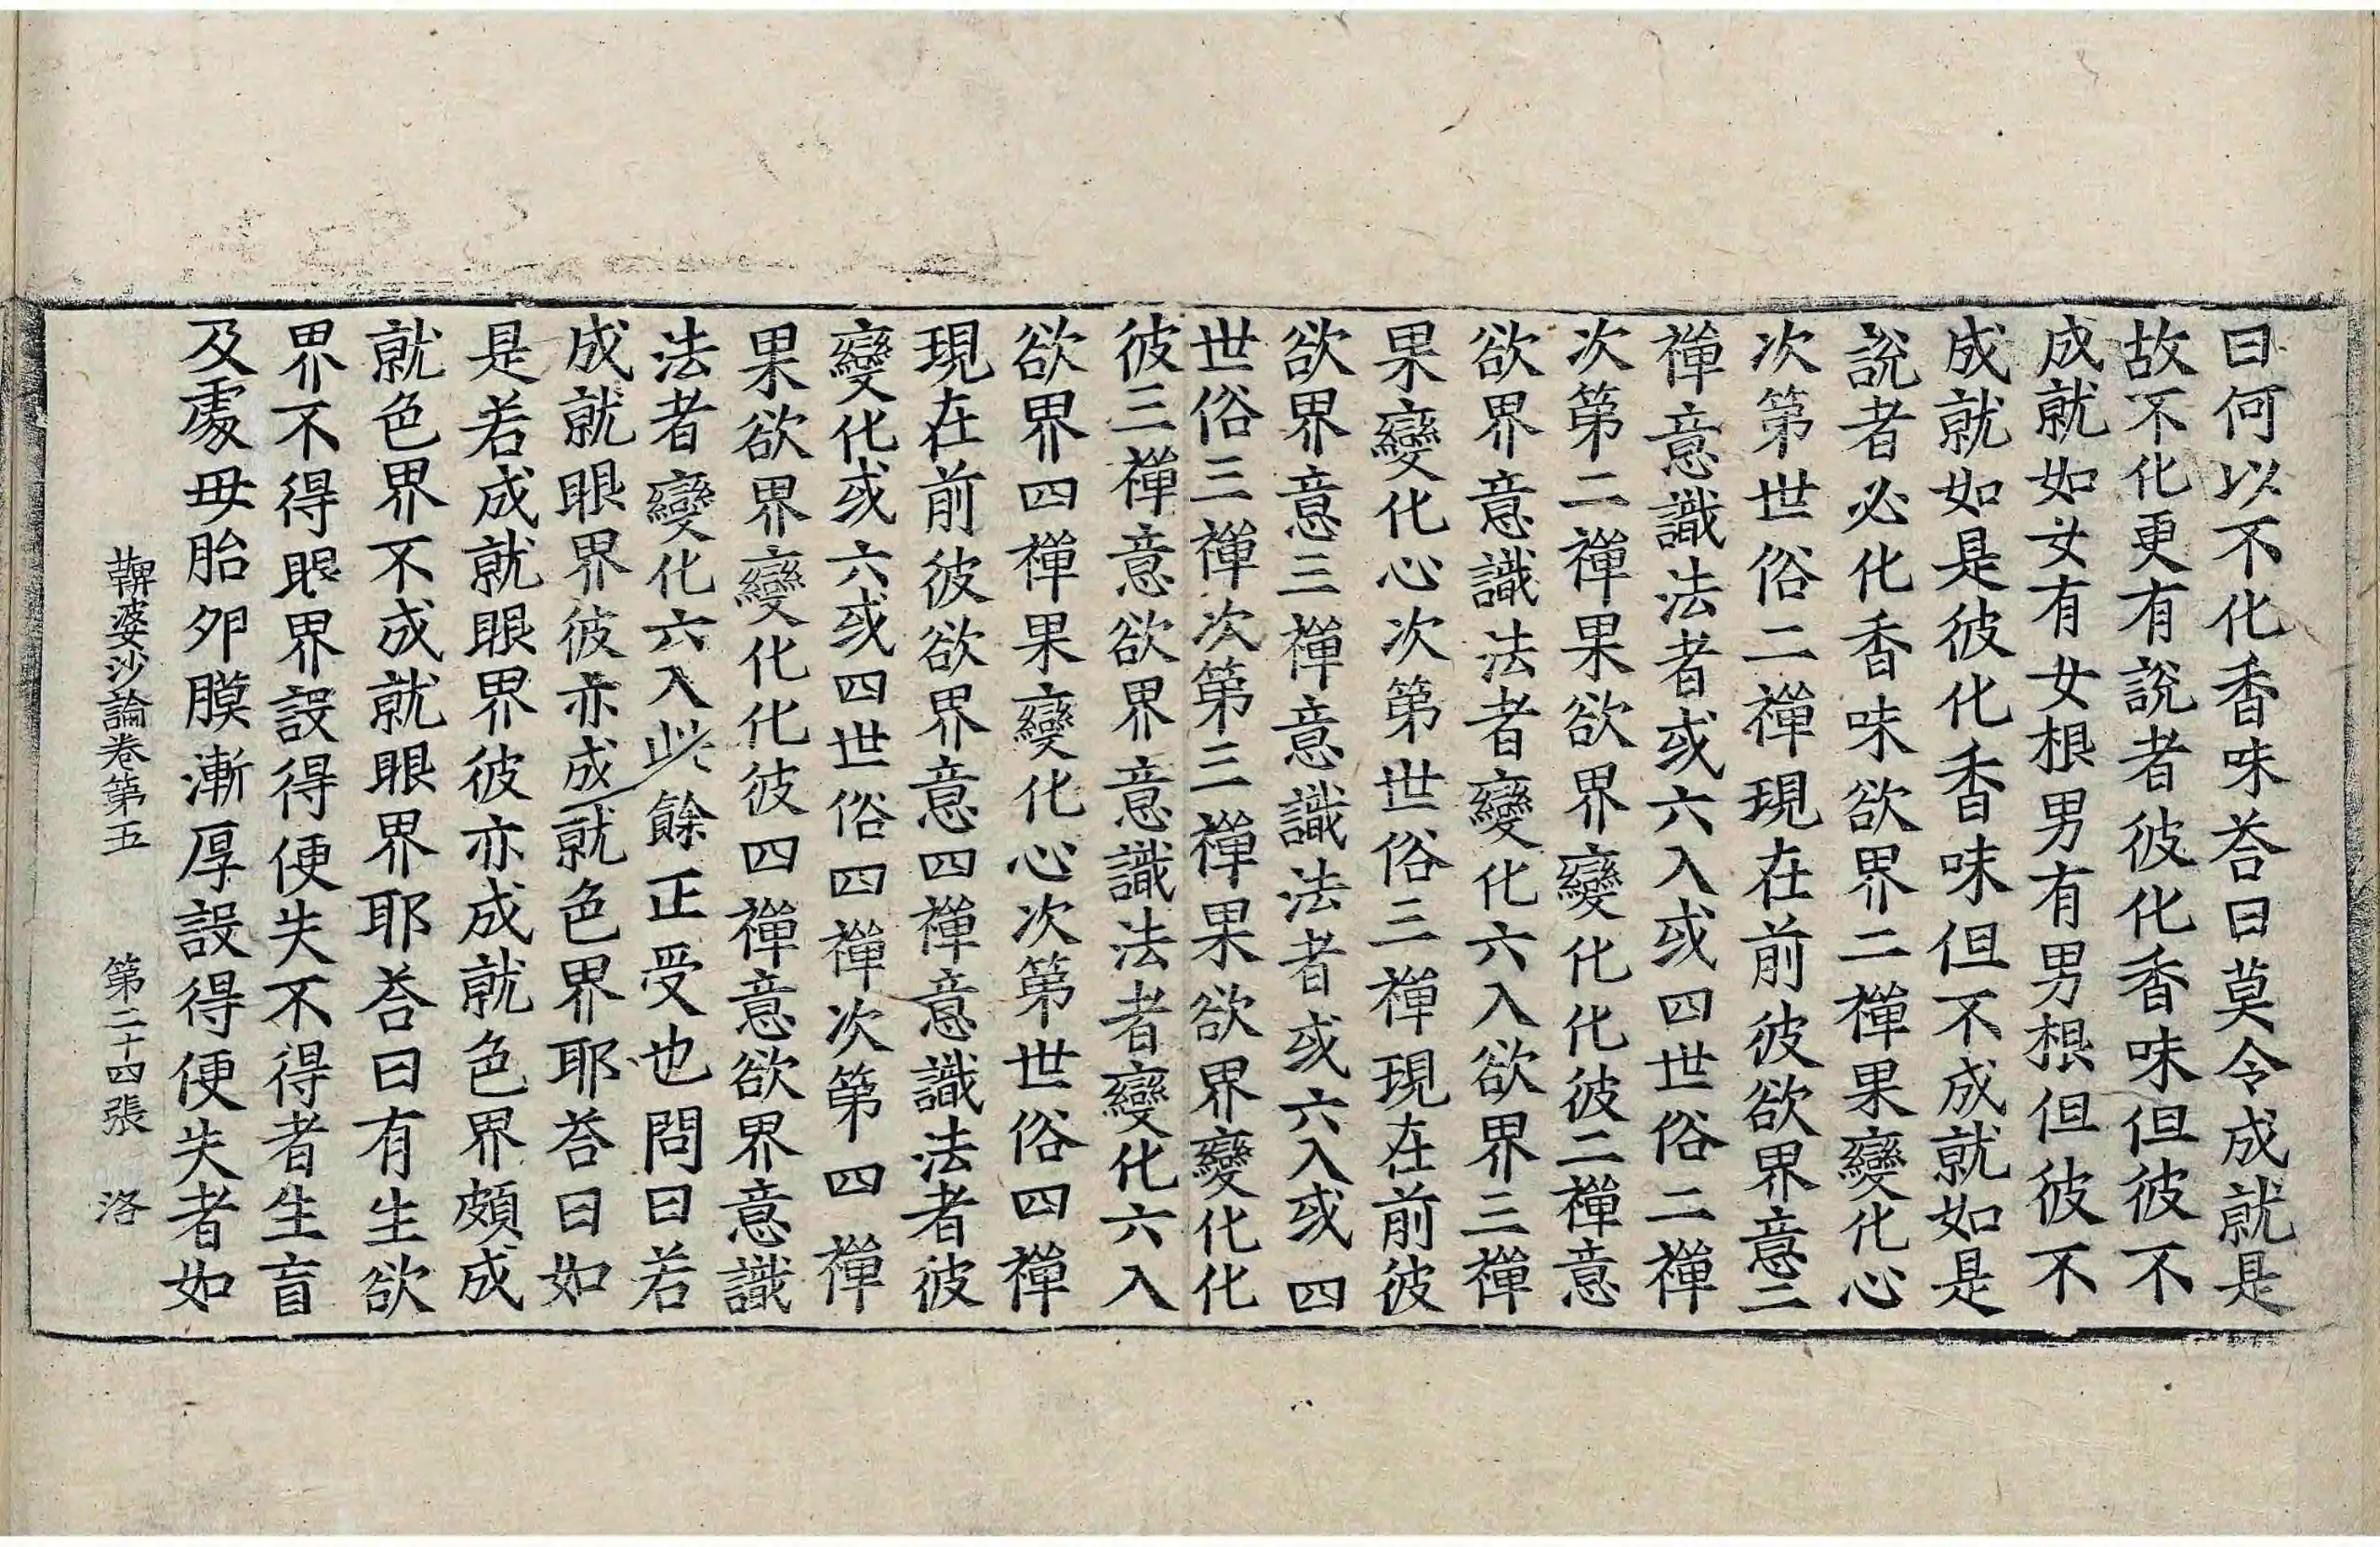 曰何以不化香味荅曰莫令成就是
故不化更有說者彼化香味但彼不
成就如女有女根男有男根但彼不
成就如是彼化香味但不成就如是
說者必化香味欲界二禪果變化心
次第世俗二禪現在前彼欲界意二
禪意識法者或六入或四世俗二禪
次第二禪果欲界變化化彼二禪意
欲界意識法者變化六入欲界三禪
果變化心次第世俗三禪現在前彼
欲界意三禪意識法者或六入或四
世俗三禪次第三禪果欲界變化化
彼三禪意欲界意識法者變化六入
欲界四禪果變化心次第世俗四禪
現在前彼欲界意四禪意識法者彼
變化或六或四世俗四禪次第四禪
果欲界變化化彼四禪意欲界意識
法者變化六入此餘正受也問曰若
成就眼界彼亦成就色界耶荅曰如
是若成就眼界彼亦成就色界頗成
就色界不成就眼界耶荅曰有生欲
界不得眼界設得便失不得者生盲
及處母胎卵膜漸厚設得便失者如
鞞婆沙論卷第五 第二十四張 洛